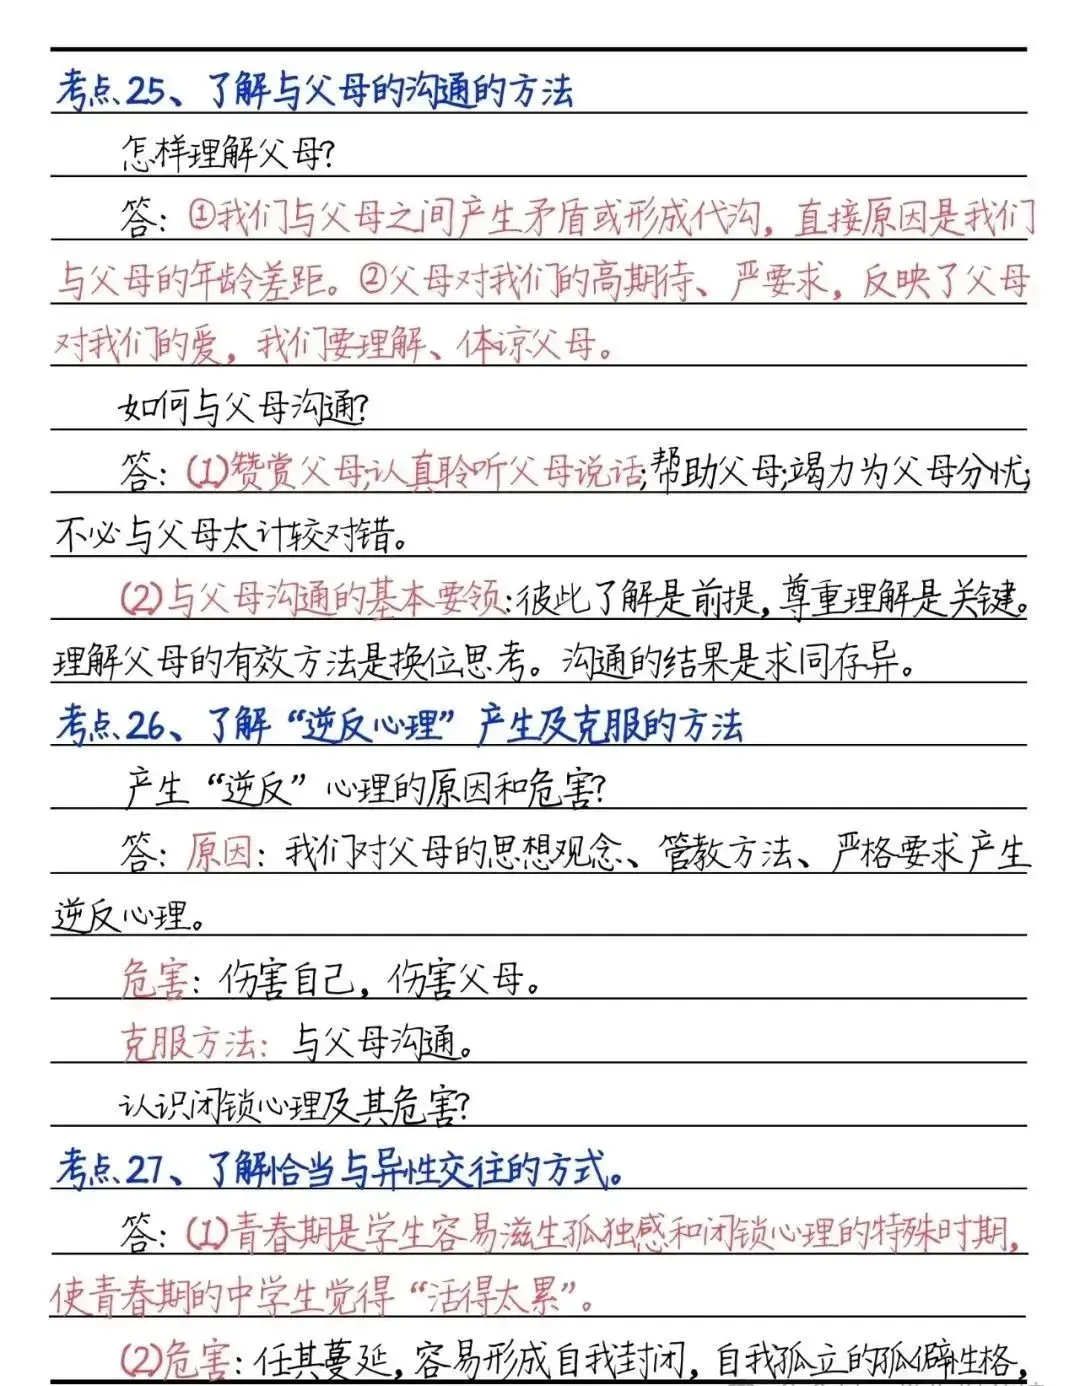 考点.25、了解与父母的沟通的方法
怎样理解父母?
答：①我们与父母之间产生矛盾或形成代沟，直接原因是我们
与父母的年龄差距。②父母对我们的高期待、严要求，反映了父母
对我们的爱，我们要理解、体谅父母。
如何与父母沟通?
答：(1)赞赏父母;认真聆听父母说话;帮助父母;竭力为父母分忧;
不必与父母太计较对错。
(2)与父母沟通的基本要领:彼此了解是前提,尊重理解是关键。
理解父母的有效方法是换位思考。沟通的结果是求同存异。
考点.26、了解“逆反心理”产生及克服的方法
产生“逆反”心理的原因和危害?
答：原因：我们对父母的思想观念、管教方法、严格要求产生
逆反心理。
危害：伤害自己，伤害父母。
克服方法：与父母沟通。
认识闭锁心理及其危害?
考点.27、了解恰当与异性交往的方式。
答：(1)青春期是学生容易滋生孤独感和闭锁心理的特殊时期，
使青春期的中学生觉得“活得太累”。
(2)危害:任其蔓延,容易形成自我封闭,自我孤立的孤僻性格,